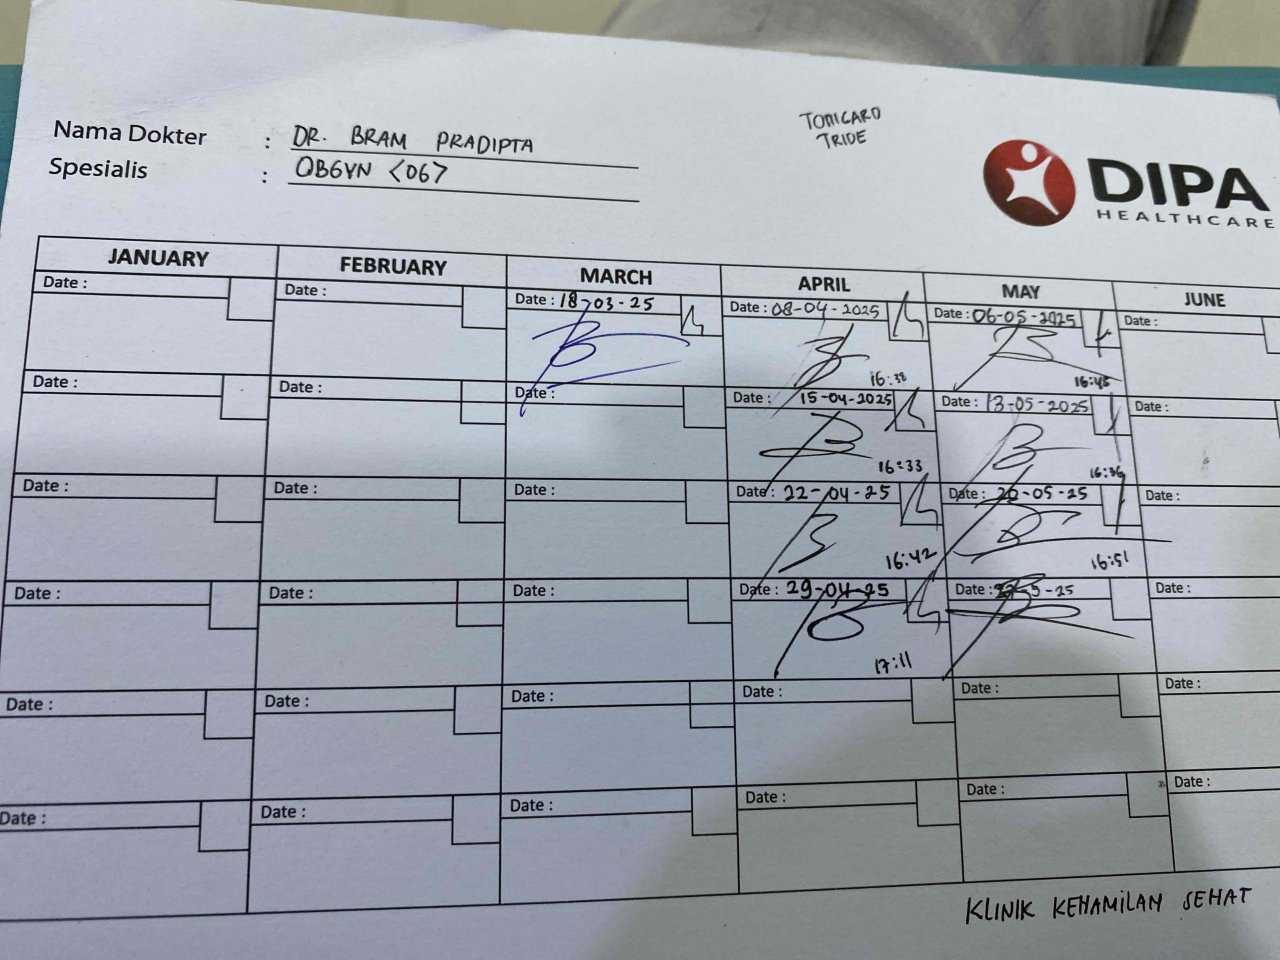 Nama Dokter : DR. BRAM PRADIPTA
Spesialis : OBGYN <06>
TONICARD
TRIDE
DIPA
HEALTHCARE
JANUARY FEBRUARY MARCH APRIL MAY JUNE
Date : Date : Date : 18-03-25 Date : 08-04-2025 Date : 06-05-2025 Date :
16:38 16:45
Date : Date : Date : Date : 15-04-2025 Date : 13-05-2025 Date :
16:33 16:36
Date : Date : Date : Date : 22-04-25 Date : 20-05-25 Date :
16:42 16:51
Date : Date : Date : Date : 29-04-25 Date : -25 Date :
17:11
Date : Date : Date : Date : Date : Date :
Date : Date : Date : Date : Date : Date :
KLINIK KEHAMILAN SEHAT